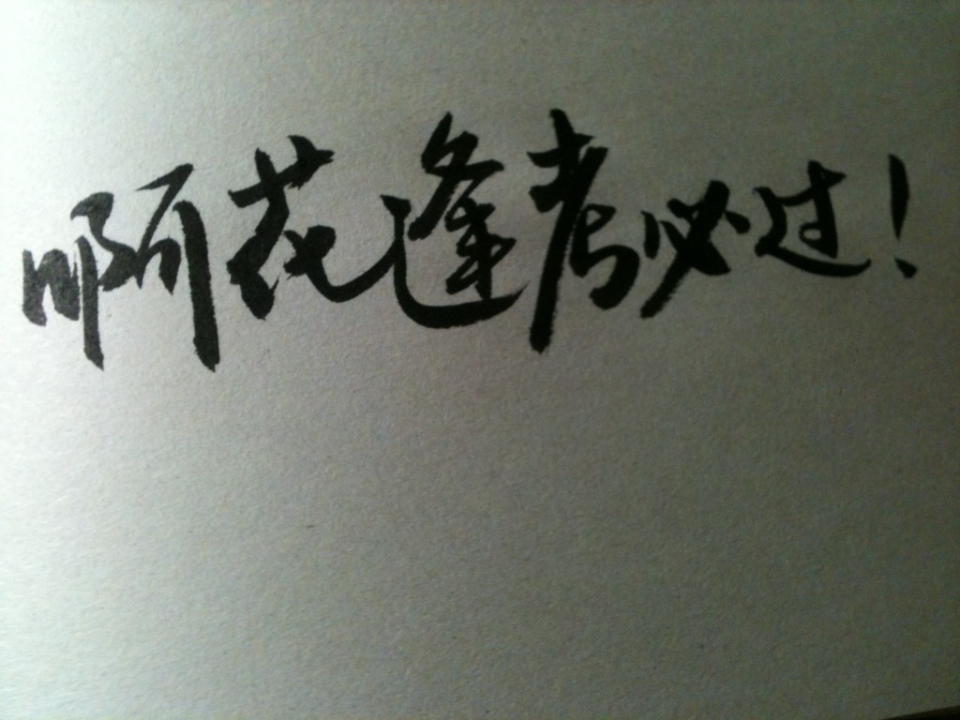 啊花逢考必过!